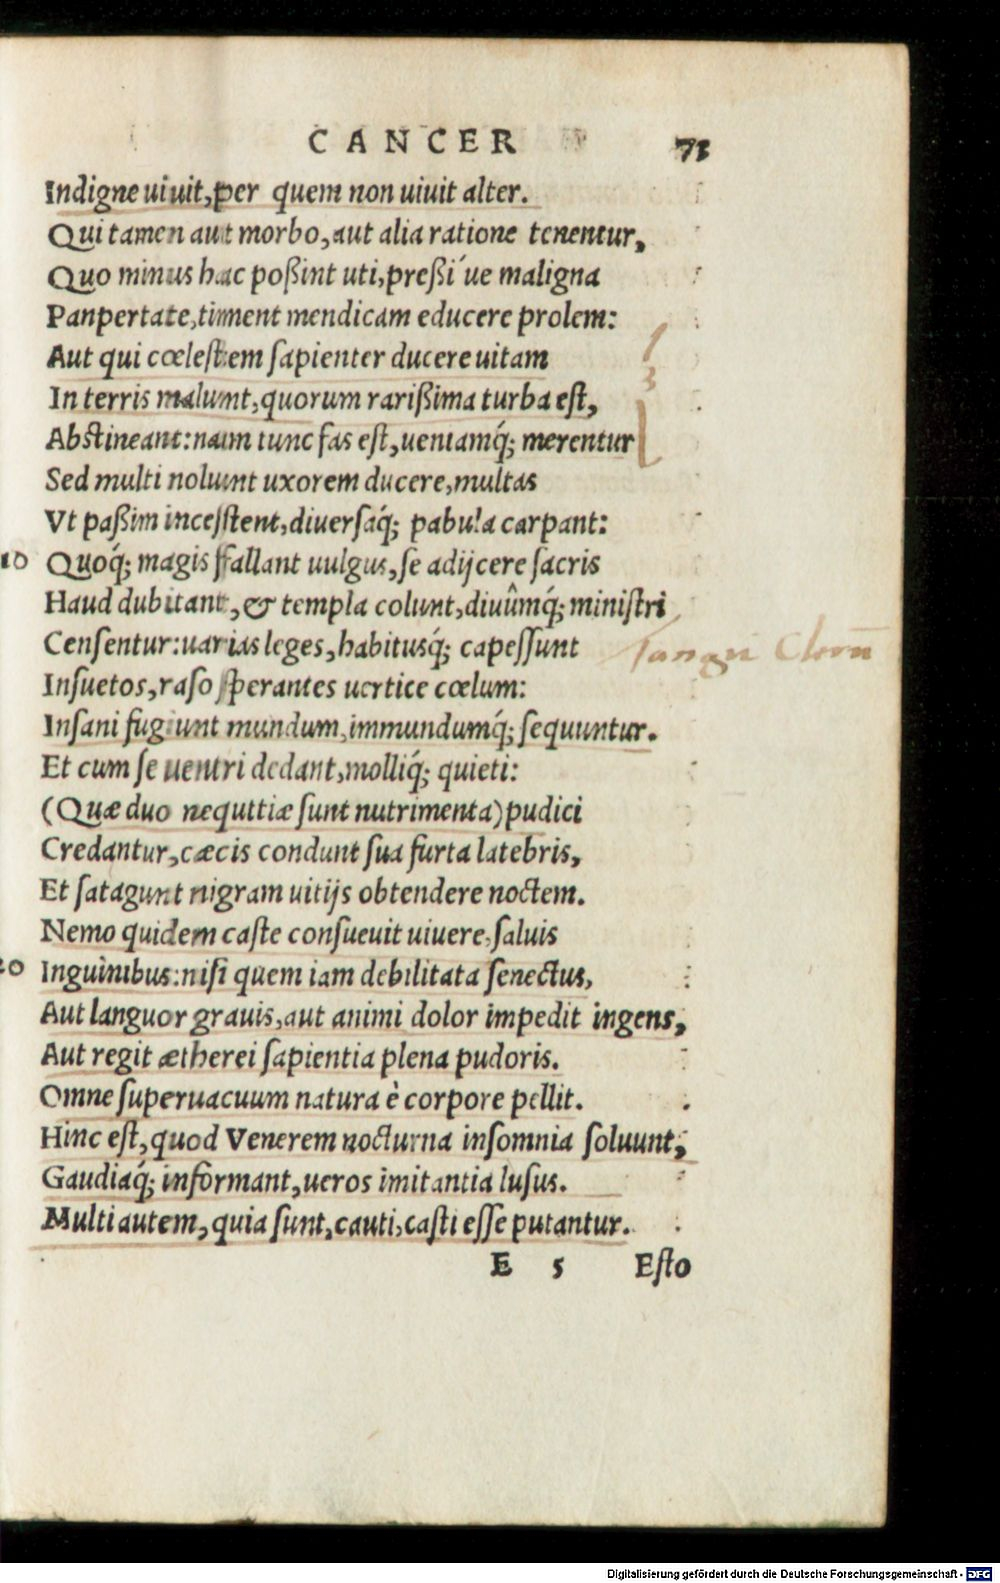 CANCER 73
Indigne uiuit, per quem non uiuit alter.
Qui tamen aut morbo, aut alia ratione tenentur,
Quo minus hac poßint uti, preßi´ue maligna
Panpertate, timent mendicam educere prolem:
Aut qui cœlestem sapienter ducere uitam
In terris malunt, quorum rarißima turba est,
Abstineant: nam tunc fas est, ueniamq́; merentur
Sed multi nolunt uxorem ducere, multas
Vt paßim incestent, diuersaq́; pabula carpant:
10 Quoq́; magis fallant uulgus, se adijcere sacris
Haud dubitant, & templa colunt, diuûmq́; ministri
Censentur: uarias leges, habitusq́; capessunt
Tangit Clerū
Insuetos, raso sperantes uertice cœlum:
Insani fugiunt mundum, immundumq́; sequuntur.
Et cum se uentri dedant, molliq́; quieti:
(Quæ duo nequitiæ sunt nutrimenta) pudici
Credantur, cæcis condunt sua furta latebris,
Et satagunt nigram uitijs obtendere noctem.
Nemo quidem caste consueuit uiuere, saluis
20 Inguinibus: nisi quem iam debilitata senectus,
Aut languor grauis, aut animi dolor impedit ingens,
Aut regit ætherei sapientia plena pudoris.
Omne superuacuum natura è corpore pellit.
Hinc est, quod Venerem nocturna insomnia soluunt,
Gaudiaq́; informant, ueros imitantia lusus.
Multi autem, quia sunt, cauti, casti esse putantur.
E 5 Esto
Digitalisierung gefördert durch die Deutsche Forschungsgemeinschaft - DFG